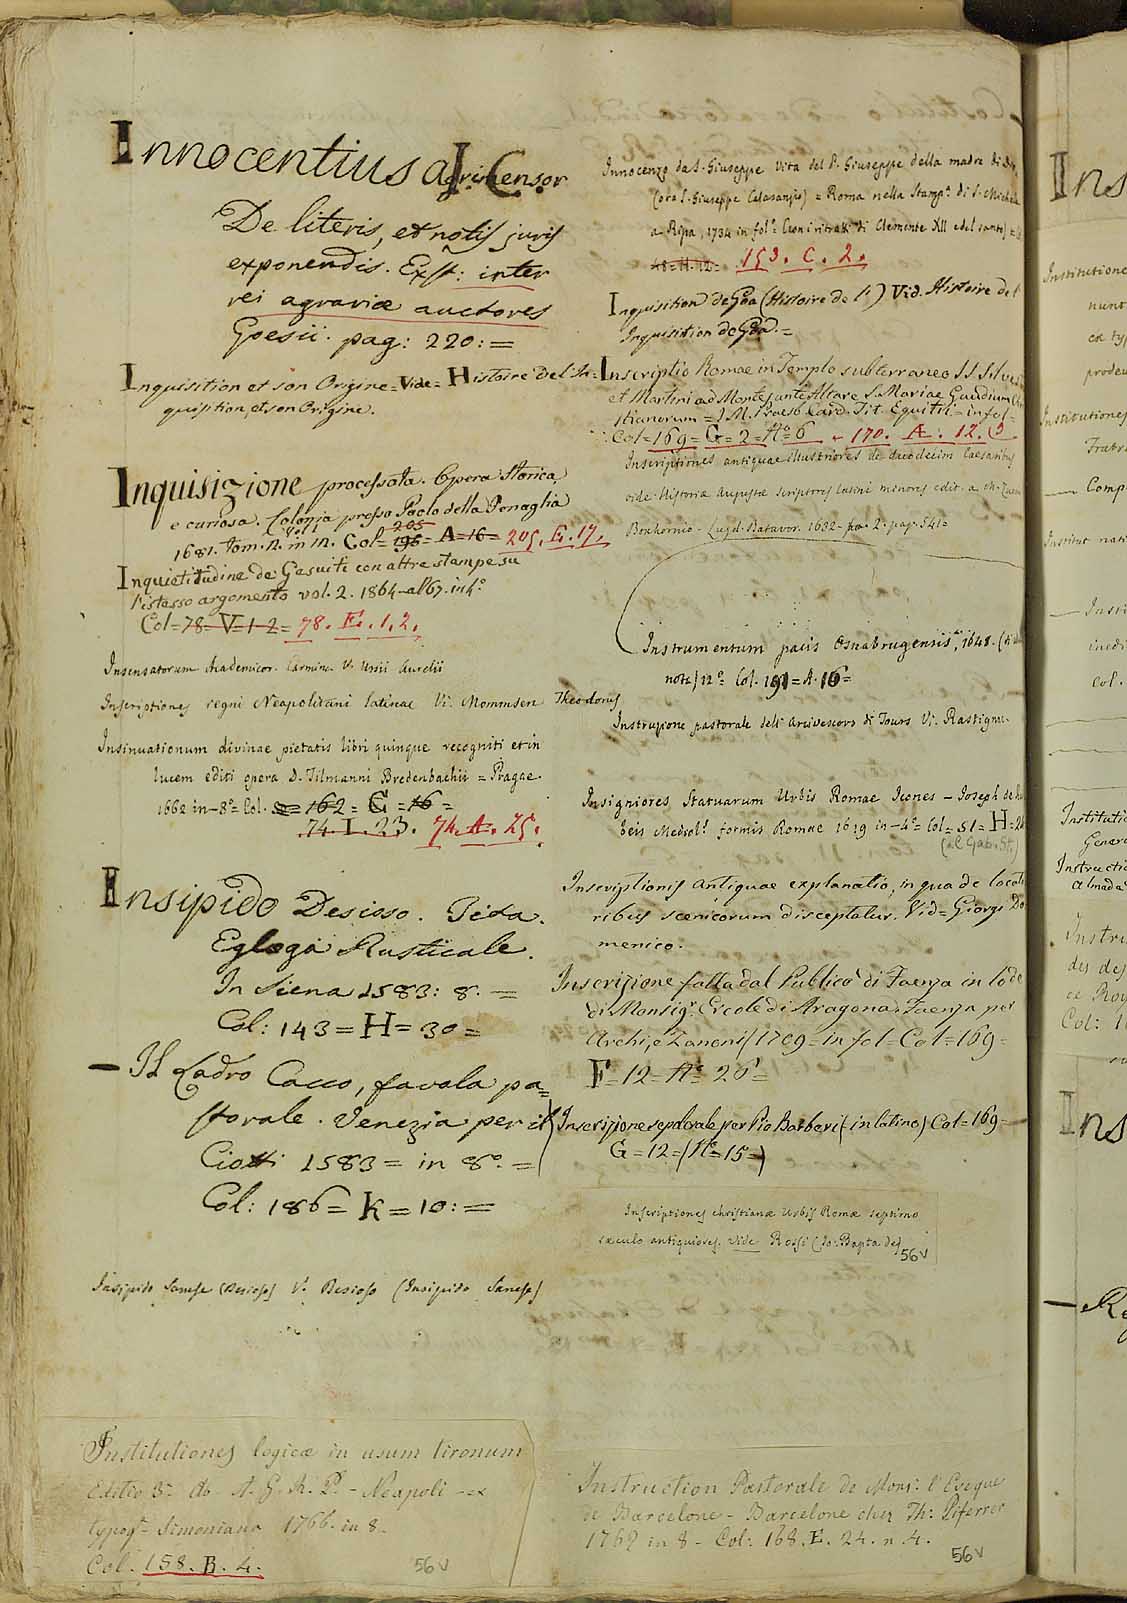 Innocentius agrimensor
De literis, et notis juris
exponendis. Exst: inter
rei agrariæ auctores
Goesii. pag: 220: =
Inquisition et son Origine = Vide = Histoire de l'In=
quisition, et son Origine.
Inquisizione processata. Opera Storica,
e curiosa. Colonia presso Paolo della Penaglia
1681. tom. 2. in 12. Col= 196= A=16= 205. E. 17.
205
Inquietitudine de Gesuiti con altre stampe su
l'istesso argomento vol. 2. 1864-al 67. in 4.º
Col=78=V=1-2= 78. E. 1. 2.
Insensatorum Academicor. Carmina V. Ursii Aurelii
Inscriptiones regni Neapolitani latinae Vi. Mommsen Theodorus
Insinuationum divinae pietatis libri quinque recogniti et in
lucem editi opera D. Tilmanni Bredenbachii = Pragae.
1662 in-8º= Col. 162= G =16=
74. I. 23. 74. A. 25.
Insipido Desioso. Pixa.
Egloga Rusticale.
In Siena 1583: 8. =
Col: 143=H=30=
— Il Ladro Cacco, favola pa=
storale. Venezia per il
Ciotti 1583= in 8º. =
Col: 186= K=10: =
Insipido Sanese (Desioso) V. Desioso (Insipido Sanese)
Institutiones logicæ in usum tironum
Editio 3ª Ab. A. G. R. P. - Neapoli - ex
typogª Simoniana 1766. in 8-
Col. 158. B. 4.
56v
Innocenzo da S. Giuseppe Vita del P. Giuseppe della madre di Dio
(ora S. Giuseppe Calasanzio) = Roma nella Stampª di S. Michele
a Ripa, 1734 in folº (con i ritratti di Clemente XII e del santo)
48=H.12= 153. C. 2.
Inquisition de Goa (Histoire de l') Vid. Histoire de l'
Inquisition de Goa. =
Inscriptio Romae in Templo subterraneo S.S. Silves
et Martini ad Montes, ante Altare S. Mariae Gaudium Chri
stianorum = J. M. Praesb. Card. Tit. Equitii = in fol =
Col=169=G=2=Nº 6 170. A. 12.
Inscriptiones antiquae illustriores de duodecim Caesaribus
vide Historiæ Augustæ scriptores latini minores edit. a M. Zuerio
Boxhornio - Lugd. Batavor. 1632 - pa. 2. pag. 541=
Instrumentum pacis Osnabrugensis, 1648.
note) 12º Col. 191=A.16=
Instruzione pastorale dell' Arcivescovo di Tours Vi. Rastignac.
Insigniores Statuarum Urbis Romae Icones - Joseph de Ru
beis Mediolˢ formis Romae 1619 in-4º= Col=51=H=24
(al Gab. St.)
Inscriptionis antiquae explanatio, in qua de locato
ribus scenicorum disceptatur. Vid= Giorgi Do
menico.
Inscrizione fatta dal Publico di Faenza in lode
di Monsigʳ Ercole di Aragona (Faenza per
Archi, e Zanoni) 1709 = in fol = Col=169=
F=12=Nº 26=
Inscrizione sepolcrale per Pio Barberi (in latino) Col=169=
G=12=(Nº 15=)
Inscriptiones christianæ Urbis Romæ septimo
sæculo antiquiores. vide Rossi (Jo: Bapta de)
56v
Instruction Pastorale de Monsʳ l'Eveque
de Barcelone - Barcelone chez Th: Piferrer
1769 in 8 - Col: 168. E. 24. n 4.
56v
Ins
Institutione
nunt
ex ty
prodeu
Institutiones
Comp
Institut nati
inedi
Col.
Institutio
Genera
Instructio
Almada
Instru
des des
ce Roy
Col: 1
Ins